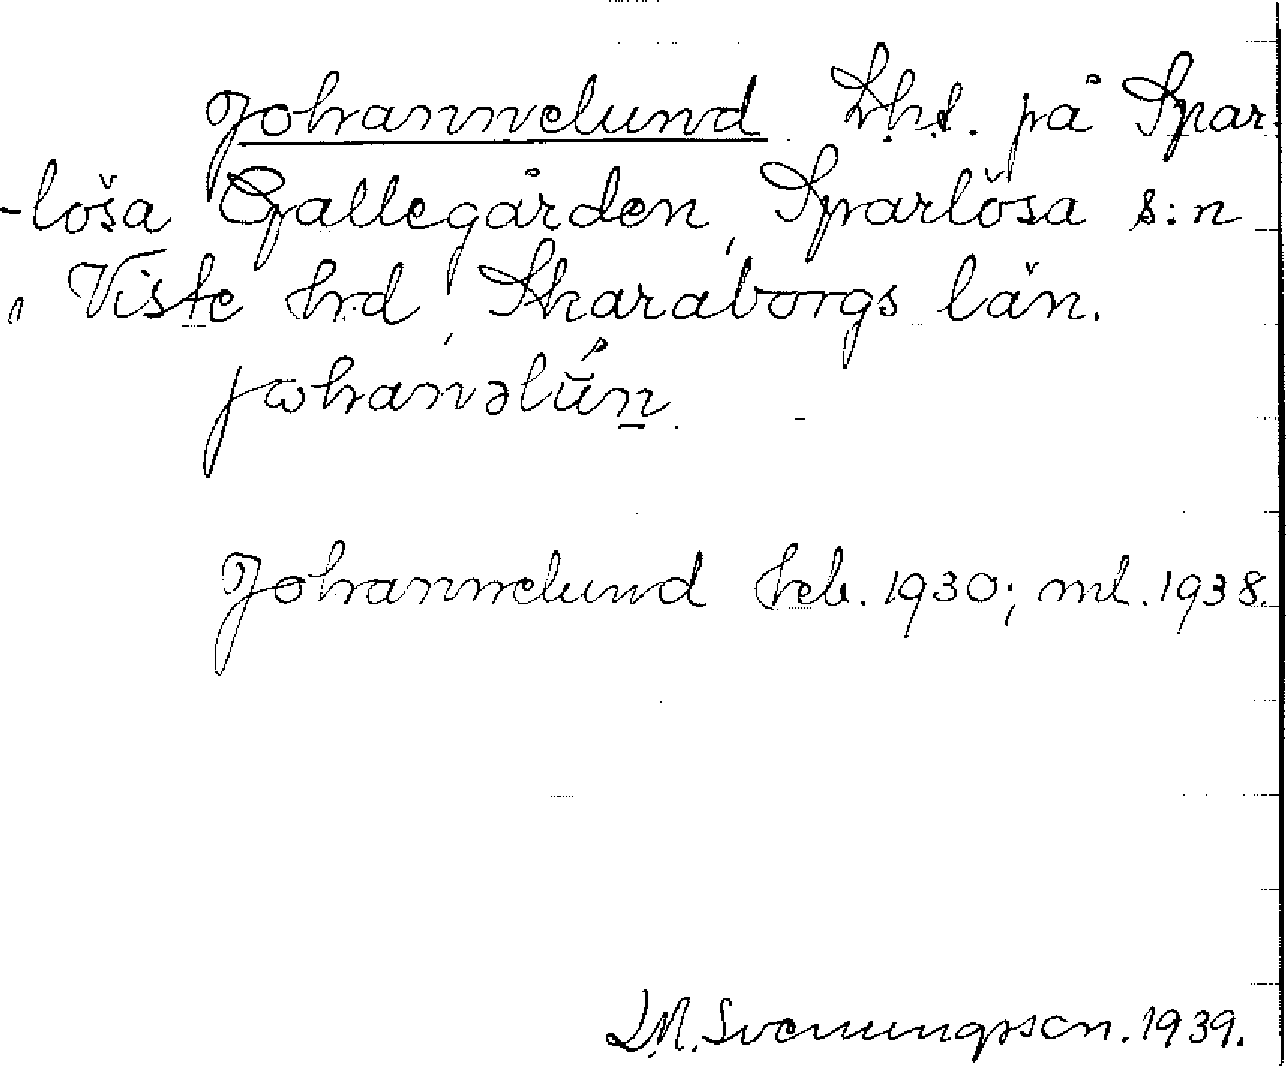 Johannelund. Lht. på Spar-
-lösa Gallegården, Sparlösa s:n
, Viste hrd, Skaraborgs län.
johanəlún.
Johannelund heb. 1930; ml. 1938.
L.M. Svenungsson. 1939.